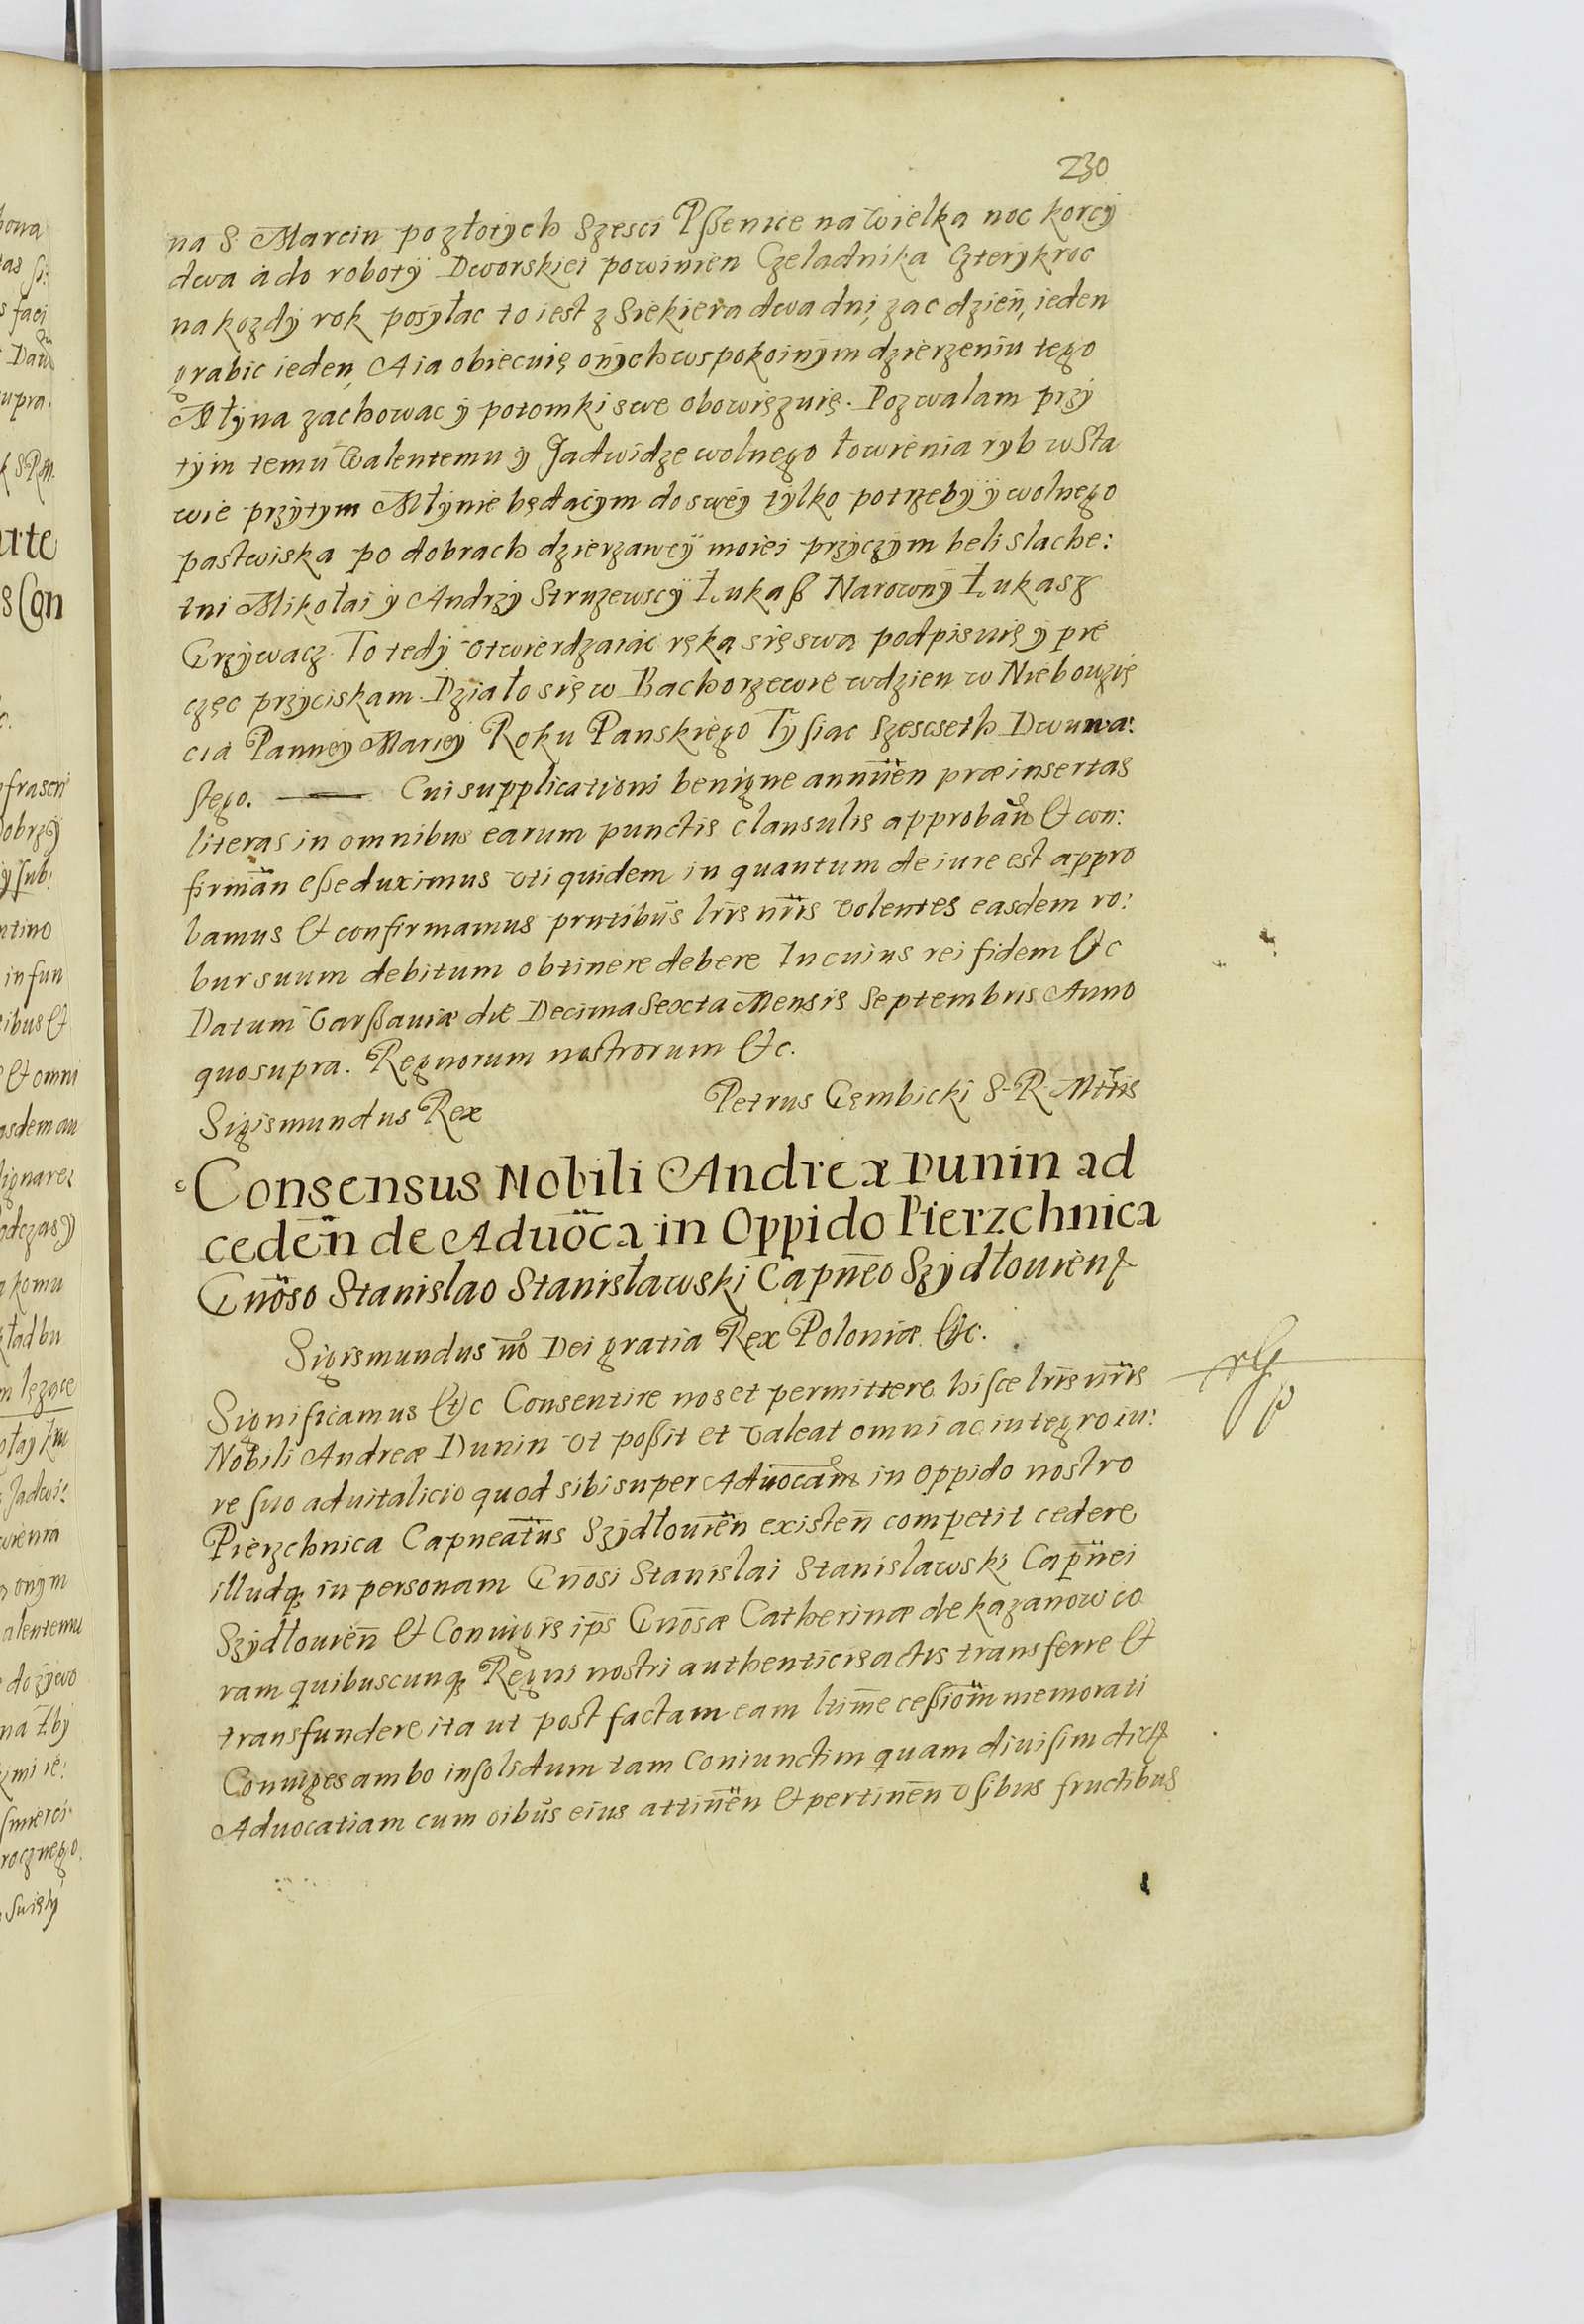 230
na S. Marcin po złotych Szesci Pßenice na wielka noc korcÿ
dwa ȧ do robotÿ Dworskiei powinien Czeladnika Czterÿkroc
na kozdÿ rok posÿłac to iest z Siekiera dwa dni, zac dzień, ieden
grabic ieden, A ia obiecuię onÿch w spokoinÿm dzierzeniu tego
Młÿna zachowac ÿ potomki swe obowięzuię. Pozwalam przÿ
tÿm temu Walentemu ÿ Jadwidze wolnego łowienia rÿb w Sta
wie przÿtÿm Młÿnie będacÿm do swéÿ tÿlko potrzebÿ ÿ wolnego
pastwiska po dobrach dzierzawcÿ moiei przÿczÿm beli slache:
tni Mikołai ÿ Andrzÿ Struzewscÿ Łukaß Narownÿ Łukasz
Grzÿwacz. To tedÿ otwierdzaiac ręką się swą podpisuię ÿ pie
częc przÿciskam. Działo się w Bachorzewie w dzien w Niebowzię
cia Pannéÿ Mariéÿ Roku Panskiego Tÿsiac Szescseth Dwuna:
stego. — Cui supplicationi benigne annuen præinsertas
literas in omnibus earum punctis clausulis approban̄ & con:
firman̄ eße duximus vti quidem in quantum de iure est appro
bamus & confirmamus pn̄tibus lr̄is nr̄is volentes easdem ro:
bur suum debitum obtinere debere In cuius rei fidem &c
Datum Varßauiæ die Decima Sexta Mensis Septembris Anno
quo supra. Regnorum nostrorum &c.
Sigismundus Rex Petrus Gęmbicki S. R. Mttis
Consensus Nobili Andreæ Dunin ad
ceden̄ de Aduoc̄a in Oppido Pierzchnica
Gnōso Stanislao Stanisławski Capnēo Szÿdłouien̄
Sigismundus Dei gratia Rex Poloniæ &c.
Significamus &c Consentire nos et permittere hisce lr̄is nr̄is
Nobili Andreæ Dunin vt poßit et valeat omni ac integro iu:
re suo aduitalicio quod sibi super Aduocām in oppido nostro
Pierzchnica Capneatus Szÿdłouien̄ existen̄ competit cedere
illudq; in personam Gnōsi Stanislai Stanislawski Capn̄ei
Szÿdłouien̄ & Coniugis ip̄s Gnōsæ Catherinæ de kazanow co
ram quibuscunq; Regni nostri authenticis actis transferre &
transfundere ita ut post factam eam ltim̄e ceßiom̄ memorati
Coniuges ambo insolidum tam coniunctim quam diuisim
Aduocatiam cum oib̄us eius attinen̄ & pertinen̄ vsibus fructibus